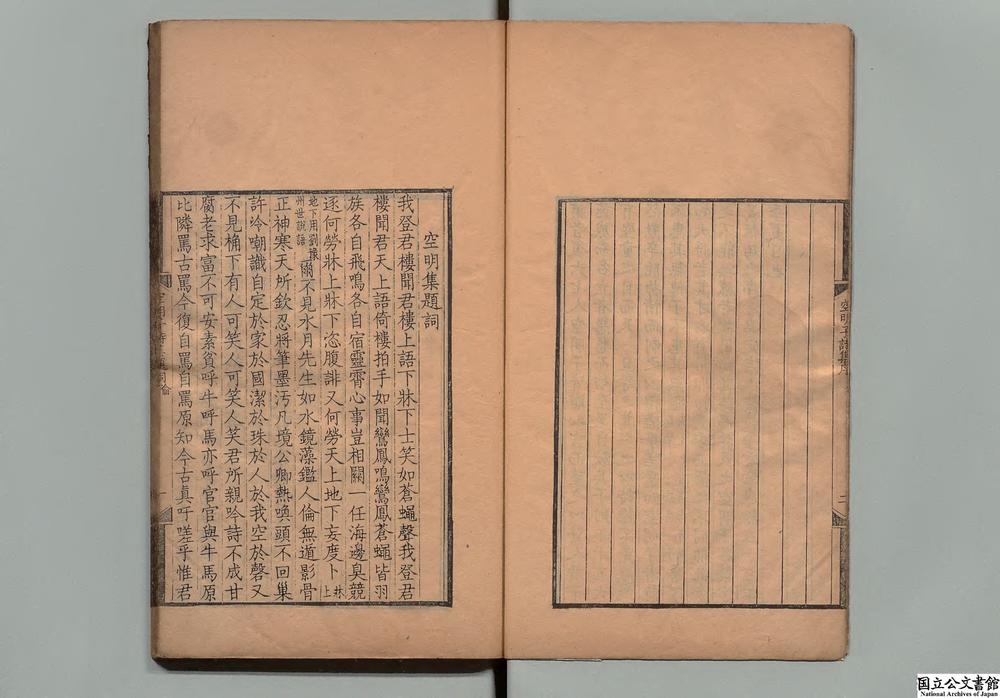 空明子詩集序
二
空明集題詞
我登君樓聞君樓上語下牀下士笑如蒼蠅聲我登君
樓聞君天上語倚樓拍手如聞鸞鳳鳴鸞鳳蒼蠅皆羽
族各自飛鳴各自宿靈霄心事豈相關一任海邊臭競
逐何勞牀上牀下恣腹誹又何勞天上地下妄度卜牀上
地下用劉豫州世說語爾不見水月先生如水鏡藻鑑人倫無遁影骨
正神寒天所欽忍將筆墨汚凡境公卿熱喚頭不回巢
許冷嘲識自定於家於國潔於珠於人於我空於磬又
不見桶下有人可笑人可笑人笑君所親吟詩不成甘
腐老求富不可安素貧呼牛呼馬亦呼官官與牛馬原
比隣罵古罵今復自罵自罵原知今古眞吁嗟乎惟君
一
国立公文書館
National Archives of Japan